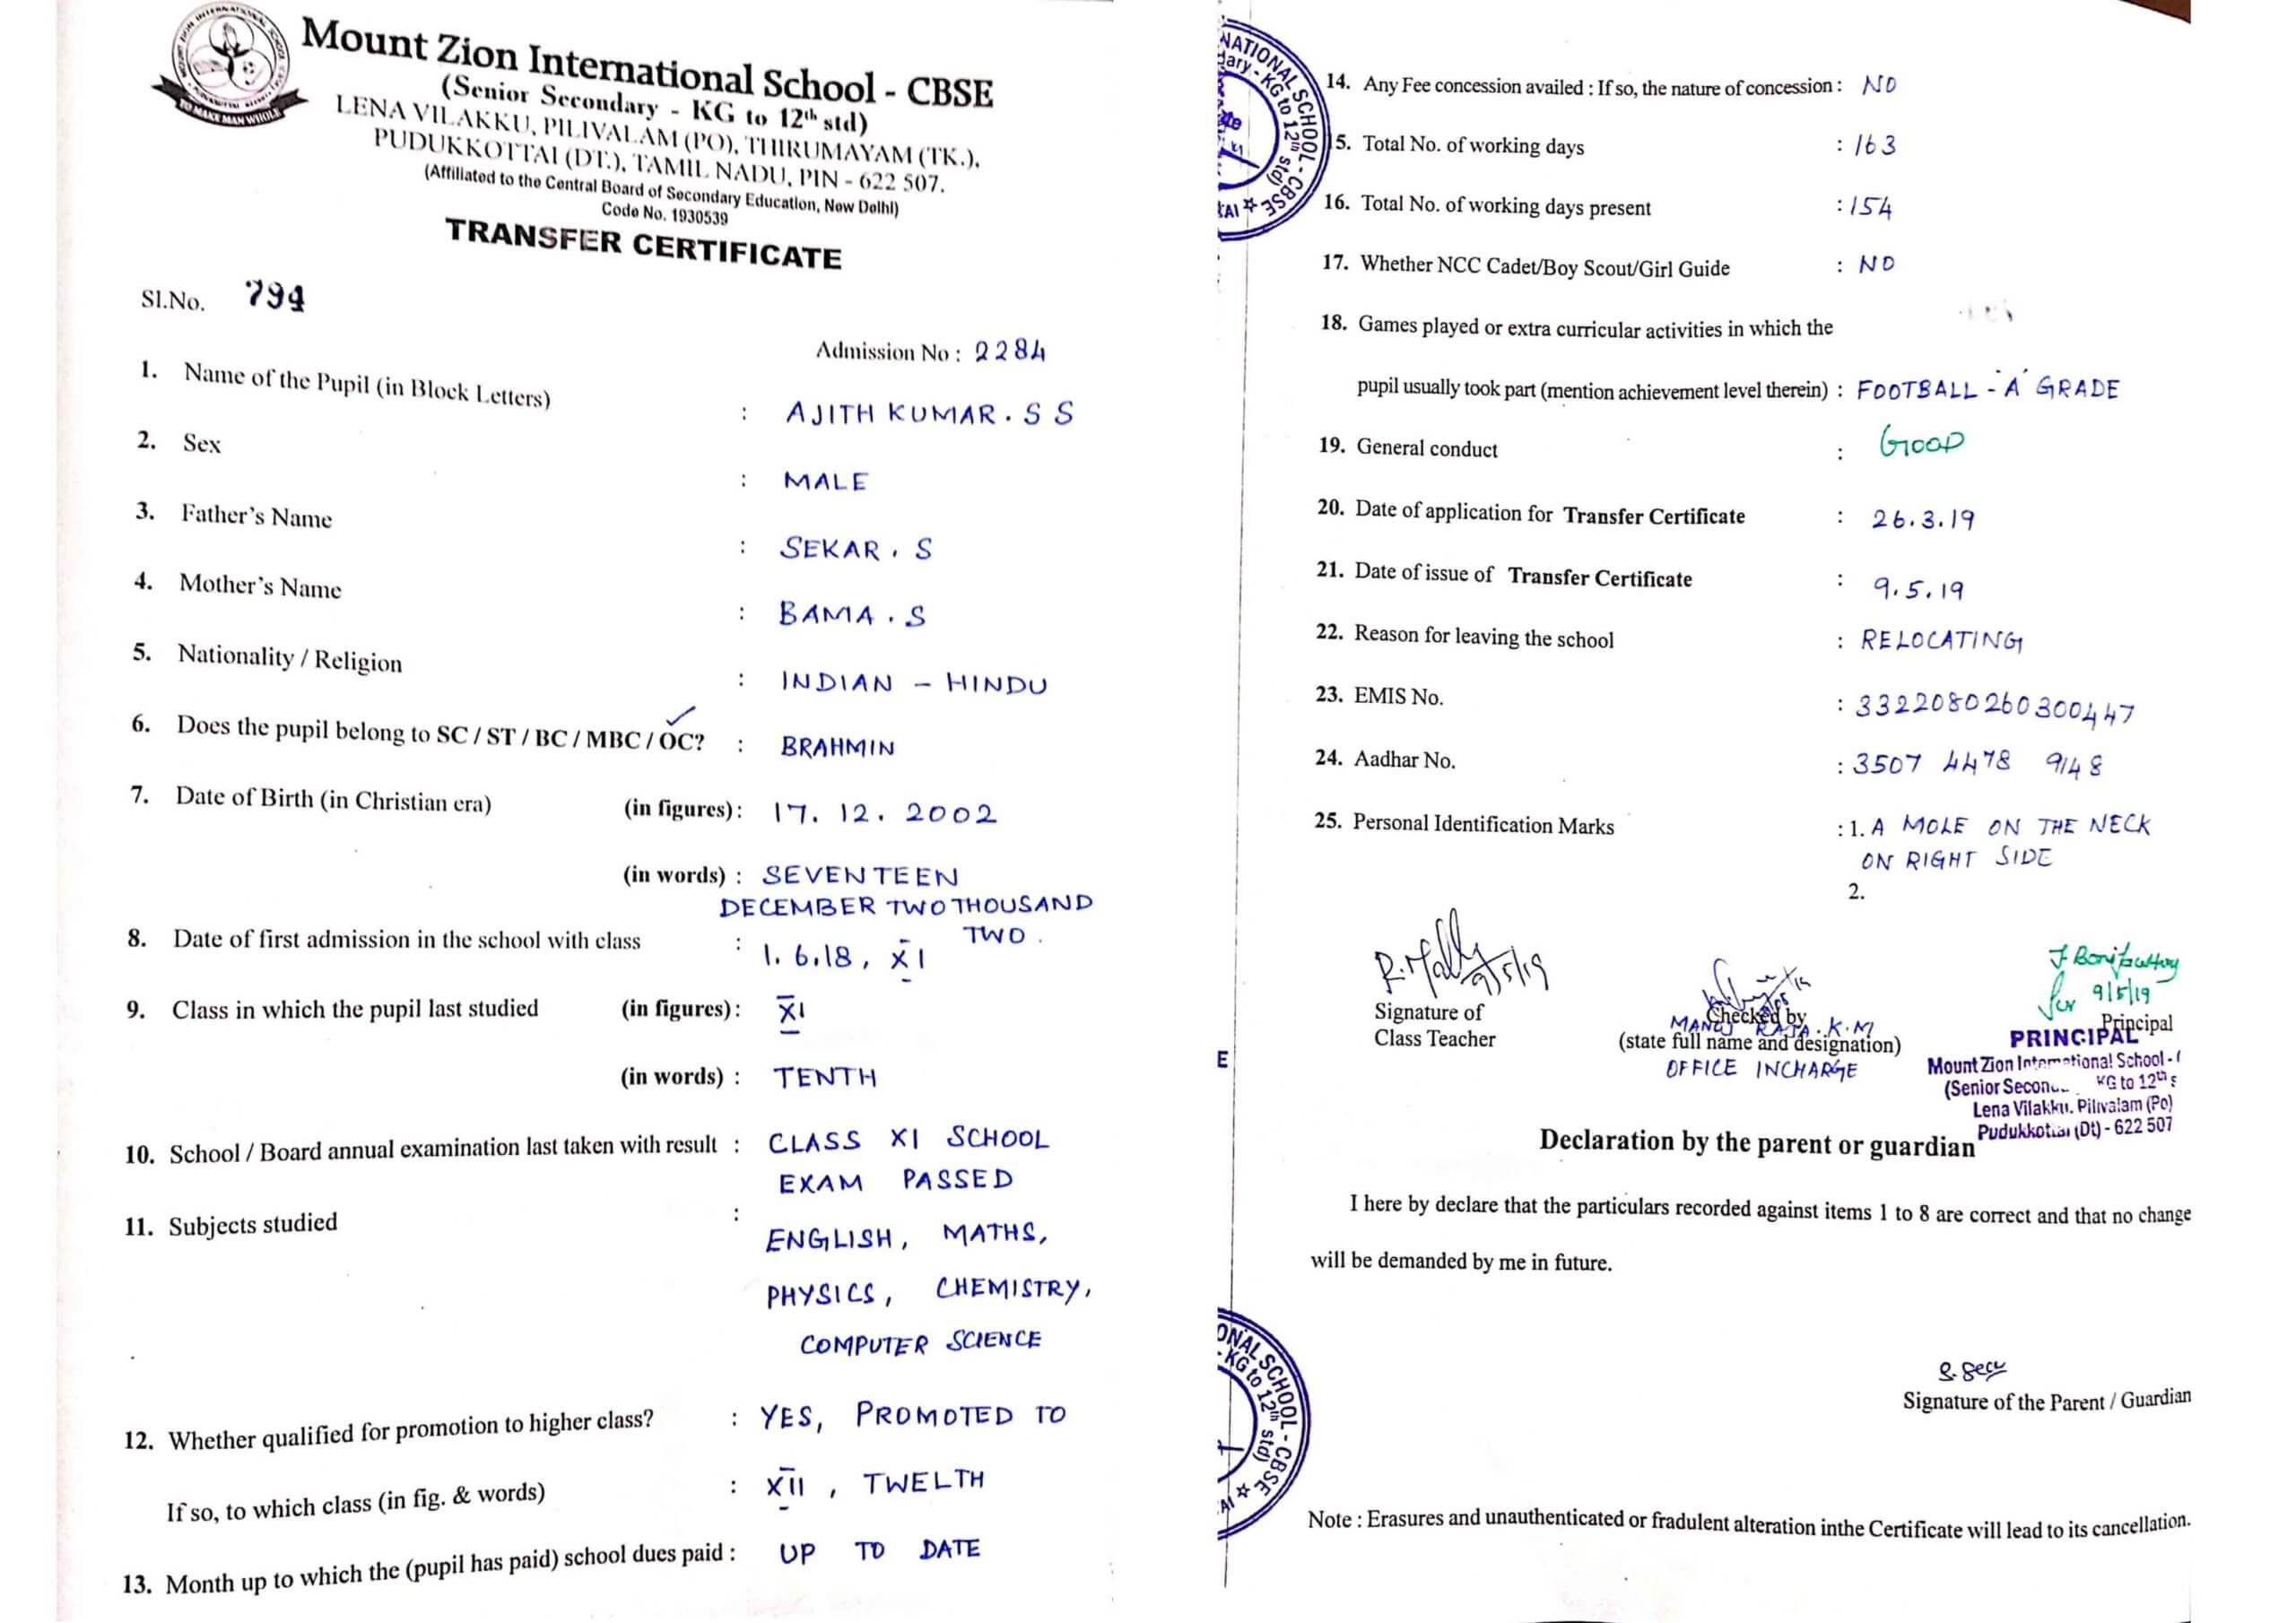 Mount Zion International School - CBSE
(Senior Secondary - KG to 12th std)
LENA VILAKKU, PILIVALAM (PO), THIRUMAYAM (TK.),
PUDUKKOTTAI (DT.), TAMIL NADU, PIN - 622 507.
(Affiliated to the Central Board of Secondary Education, New Delhi)
Code No. 1930539
TRANSFER CERTIFICATE
TO MAKE MAN WHOLE
Sl.No. 794
Admission No : 2284
1. Name of the Pupil (in Block Letters) : AJITH KUMAR . S S
2. Sex : MALE
3. Father's Name : SEKAR . S
4. Mother's Name : BAMA . S
5. Nationality / Religion : INDIAN - HINDU
6. Does the pupil belong to SC / ST / BC / MBC / OC? : BRAHMIN
7. Date of Birth (in Christian era) (in figures) : 17. 12. 2002
(in words) : SEVENTEEN
DECEMBER TWO THOUSAND
TWO .
8. Date of first admission in the school with class : 1. 6.18, XI
9. Class in which the pupil last studied (in figures) : XI
(in words) : TENTH
10. School / Board annual examination last taken with result : CLASS XI SCHOOL
EXAM PASSED
11. Subjects studied :
ENGLISH, MATHS,
PHYSICS, CHEMISTRY,
COMPUTER SCIENCE
12. Whether qualified for promotion to higher class? : YES, PROMOTED TO
If so, to which class (in fig. & words) : XII , TWELTH
13. Month up to which the (pupil has paid) school dues paid : UP TO DATE
NATIONAL SCHOOL - CBSE
dary - KG to 12th std)
14. Any Fee concession availed : If so, the nature of concession : NO
15. Total No. of working days : 163
16. Total No. of working days present : 154
17. Whether NCC Cadet/Boy Scout/Girl Guide : NO
18. Games played or extra curricular activities in which the
pupil usually took part (mention achievement level therein) : FOOTBALL - 'A' GRADE
19. General conduct : GOOD
20. Date of application for Transfer Certificate : 26.3.19
21. Date of issue of Transfer Certificate : 9.5.19
22. Reason for leaving the school : RELOCATING
23. EMIS No. : 3322080260300447
24. Aadhar No. : 3507 4478 9148
25. Personal Identification Marks : 1. A MOLE ON THE NECK
ON RIGHT SIDE
2.
9/5/19
Signature of
Class Teacher
Checked by
MANOJ RAJA . K . M
(state full name and designation)
OFFICE INCHARGE
for 9/5/19
Principal
PRINCIPAL
Mount Zion International School - (
(Senior Secon KG to 12th s
Lena Vilakku. Pilivalam (Po)
Pudukkottai (Dt) - 622 507
E
Declaration by the parent or guardian
I here by declare that the particulars recorded against items 1 to 8 are correct and that no change
will be demanded by me in future.
ONAL SCHOOL - CBSE
- KG to 12th std)
Signature of the Parent / Guardian
Note : Erasures and unauthenticated or fradulent alteration inthe Certificate will lead to its cancellation.